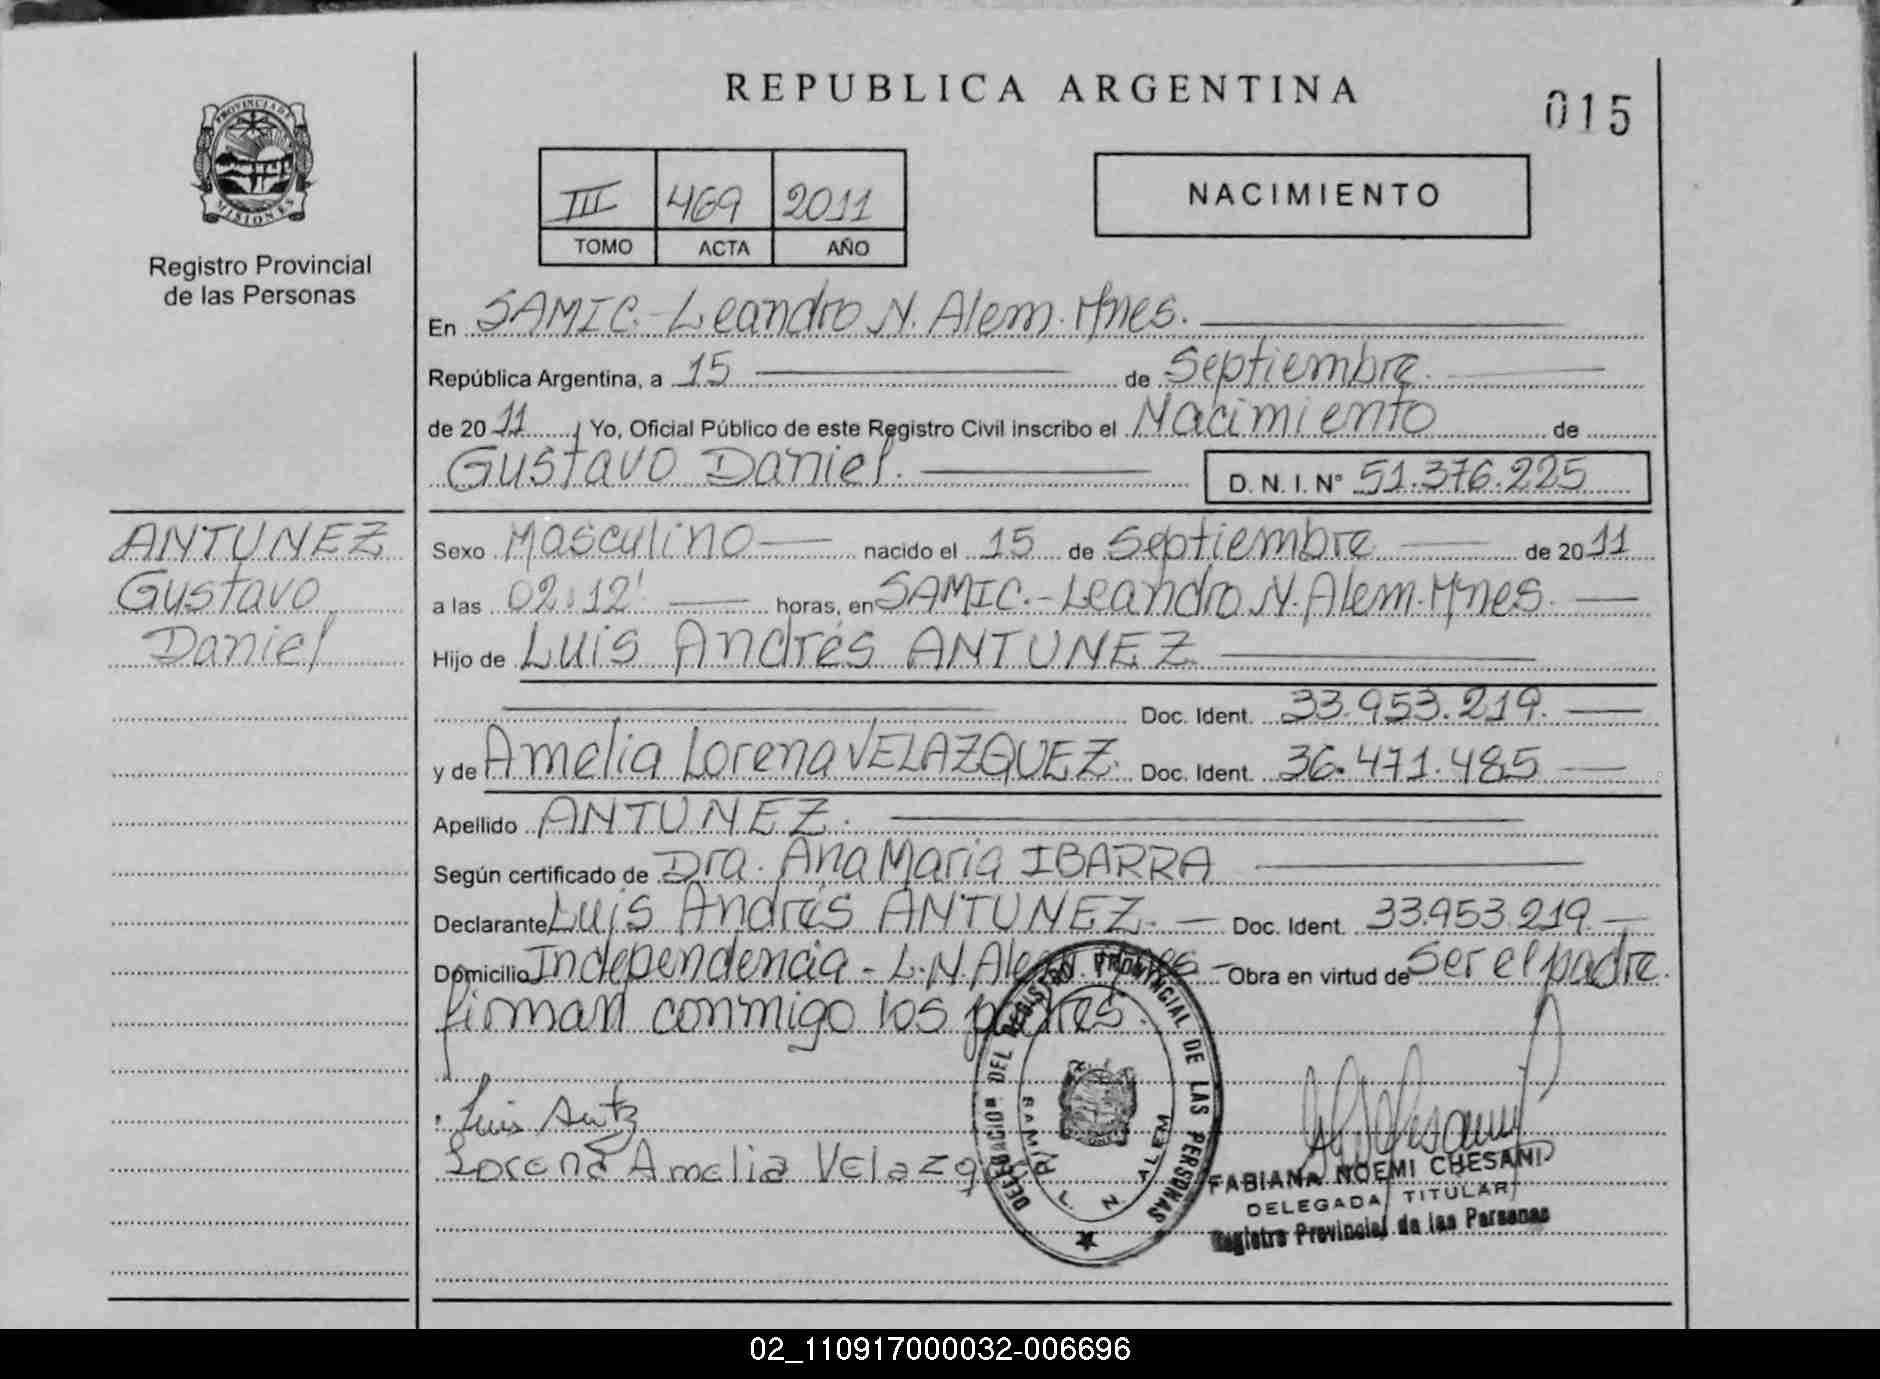 REPUBLICA ARGENTINA
015
PROVINCIA DE
MISIONES
Registro Provincial
de las Personas
III 469 2011
TOMO ACTA AÑO
NACIMIENTO
En SAMIC.-Leandro N. Alem. Mnes.
República Argentina, a 15 de Septiembre.
de 2011 Yo, Oficial Público de este Registro Civil inscribo el Nacimiento de
Gustavo Daniel. D. N. I. N° 51.376.225
ANTUNEZ
Gustavo
Daniel
Sexo Masculino nacido el 15 de Septiembre de 2011
a las 02:12' horas, en SAMIC.-Leandro N. Alem. Mnes.
Hijo de Luis Andrés ANTUNEZ
Doc. Ident. 33.953.219.
y de Amelia Lorena VELAZQUEZ. Doc. Ident. 36.471.485
Apellido ANTUNEZ.
Según certificado de Dra. Ana Maria IBARRA
Declarante Luis Andrés ANTUNEZ. Doc. Ident. 33.953.219.
Domicilio Independencia - L.N. Alem. Mnes - Obra en virtud de Ser el padre.
firman conmigo los padres.
Luis Antz
Lorena Amelia Velazq
DELEGACION DEL REGISTRO PROVINCIAL DE LAS PERSONAS
SAMIC L. N. ALEM
FABIANA NOEMI CHESANI
DELEGADA TITULAR
Registro Provincial de las Personas
02_110917000032-006696